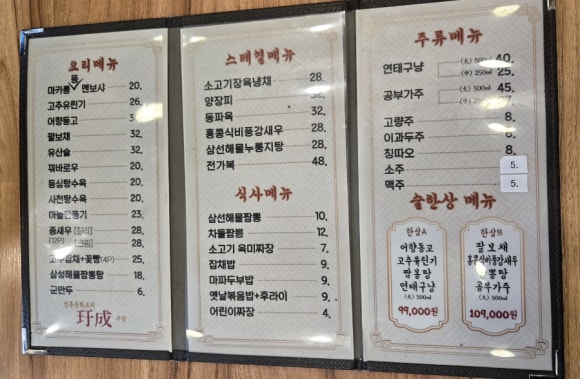 요리메뉴
뚱
마카롱 멘보샤 20.
고추유린기 26.
어향동고
팔보채 32.
유산슬 32.
꿔바로우 20.
등심탕수육 20.
사천탕수육 20.
마늘깐풍기 23.
중새우 [칠리] 28.
(12P) [크림] 28.
고추잡채+꽃빵(4P) 25.
삼성해물짬뽕탕 18.
군만두 6.
정통중화요리
玗成
스페셜메뉴
소고기장육냉채 28.
양장피 32.
동파육 32.
홍콩식비풍강새우 28.
삼선해물누룽지탕 28.
전가복 48.
식사메뉴
삼선해물짬뽕 10.
차돌짬뽕 12.
소고기 육미짜장 7.
잡채밥 9.
마파두부밥 9.
옛날볶음밥+후라이 9.
어린이짜장 4.
주류메뉴
연태구냥 (大) 500㎖ 40.
(中) 250㎖ 25.
공부가주 (大) 500㎖ 45.
고량주 8.
이과두주 8.
칭따오 8.
소주 5.
맥주 5.
술한상 메뉴
한상A
어향동고
고추유린기
짬뽕탕
연태구냥
(大) 500㎖
99,000원
한상B
팔보채
홍콩식비풍강새우
짬뽕탕
공부가주
(大) 500㎖
109,000원